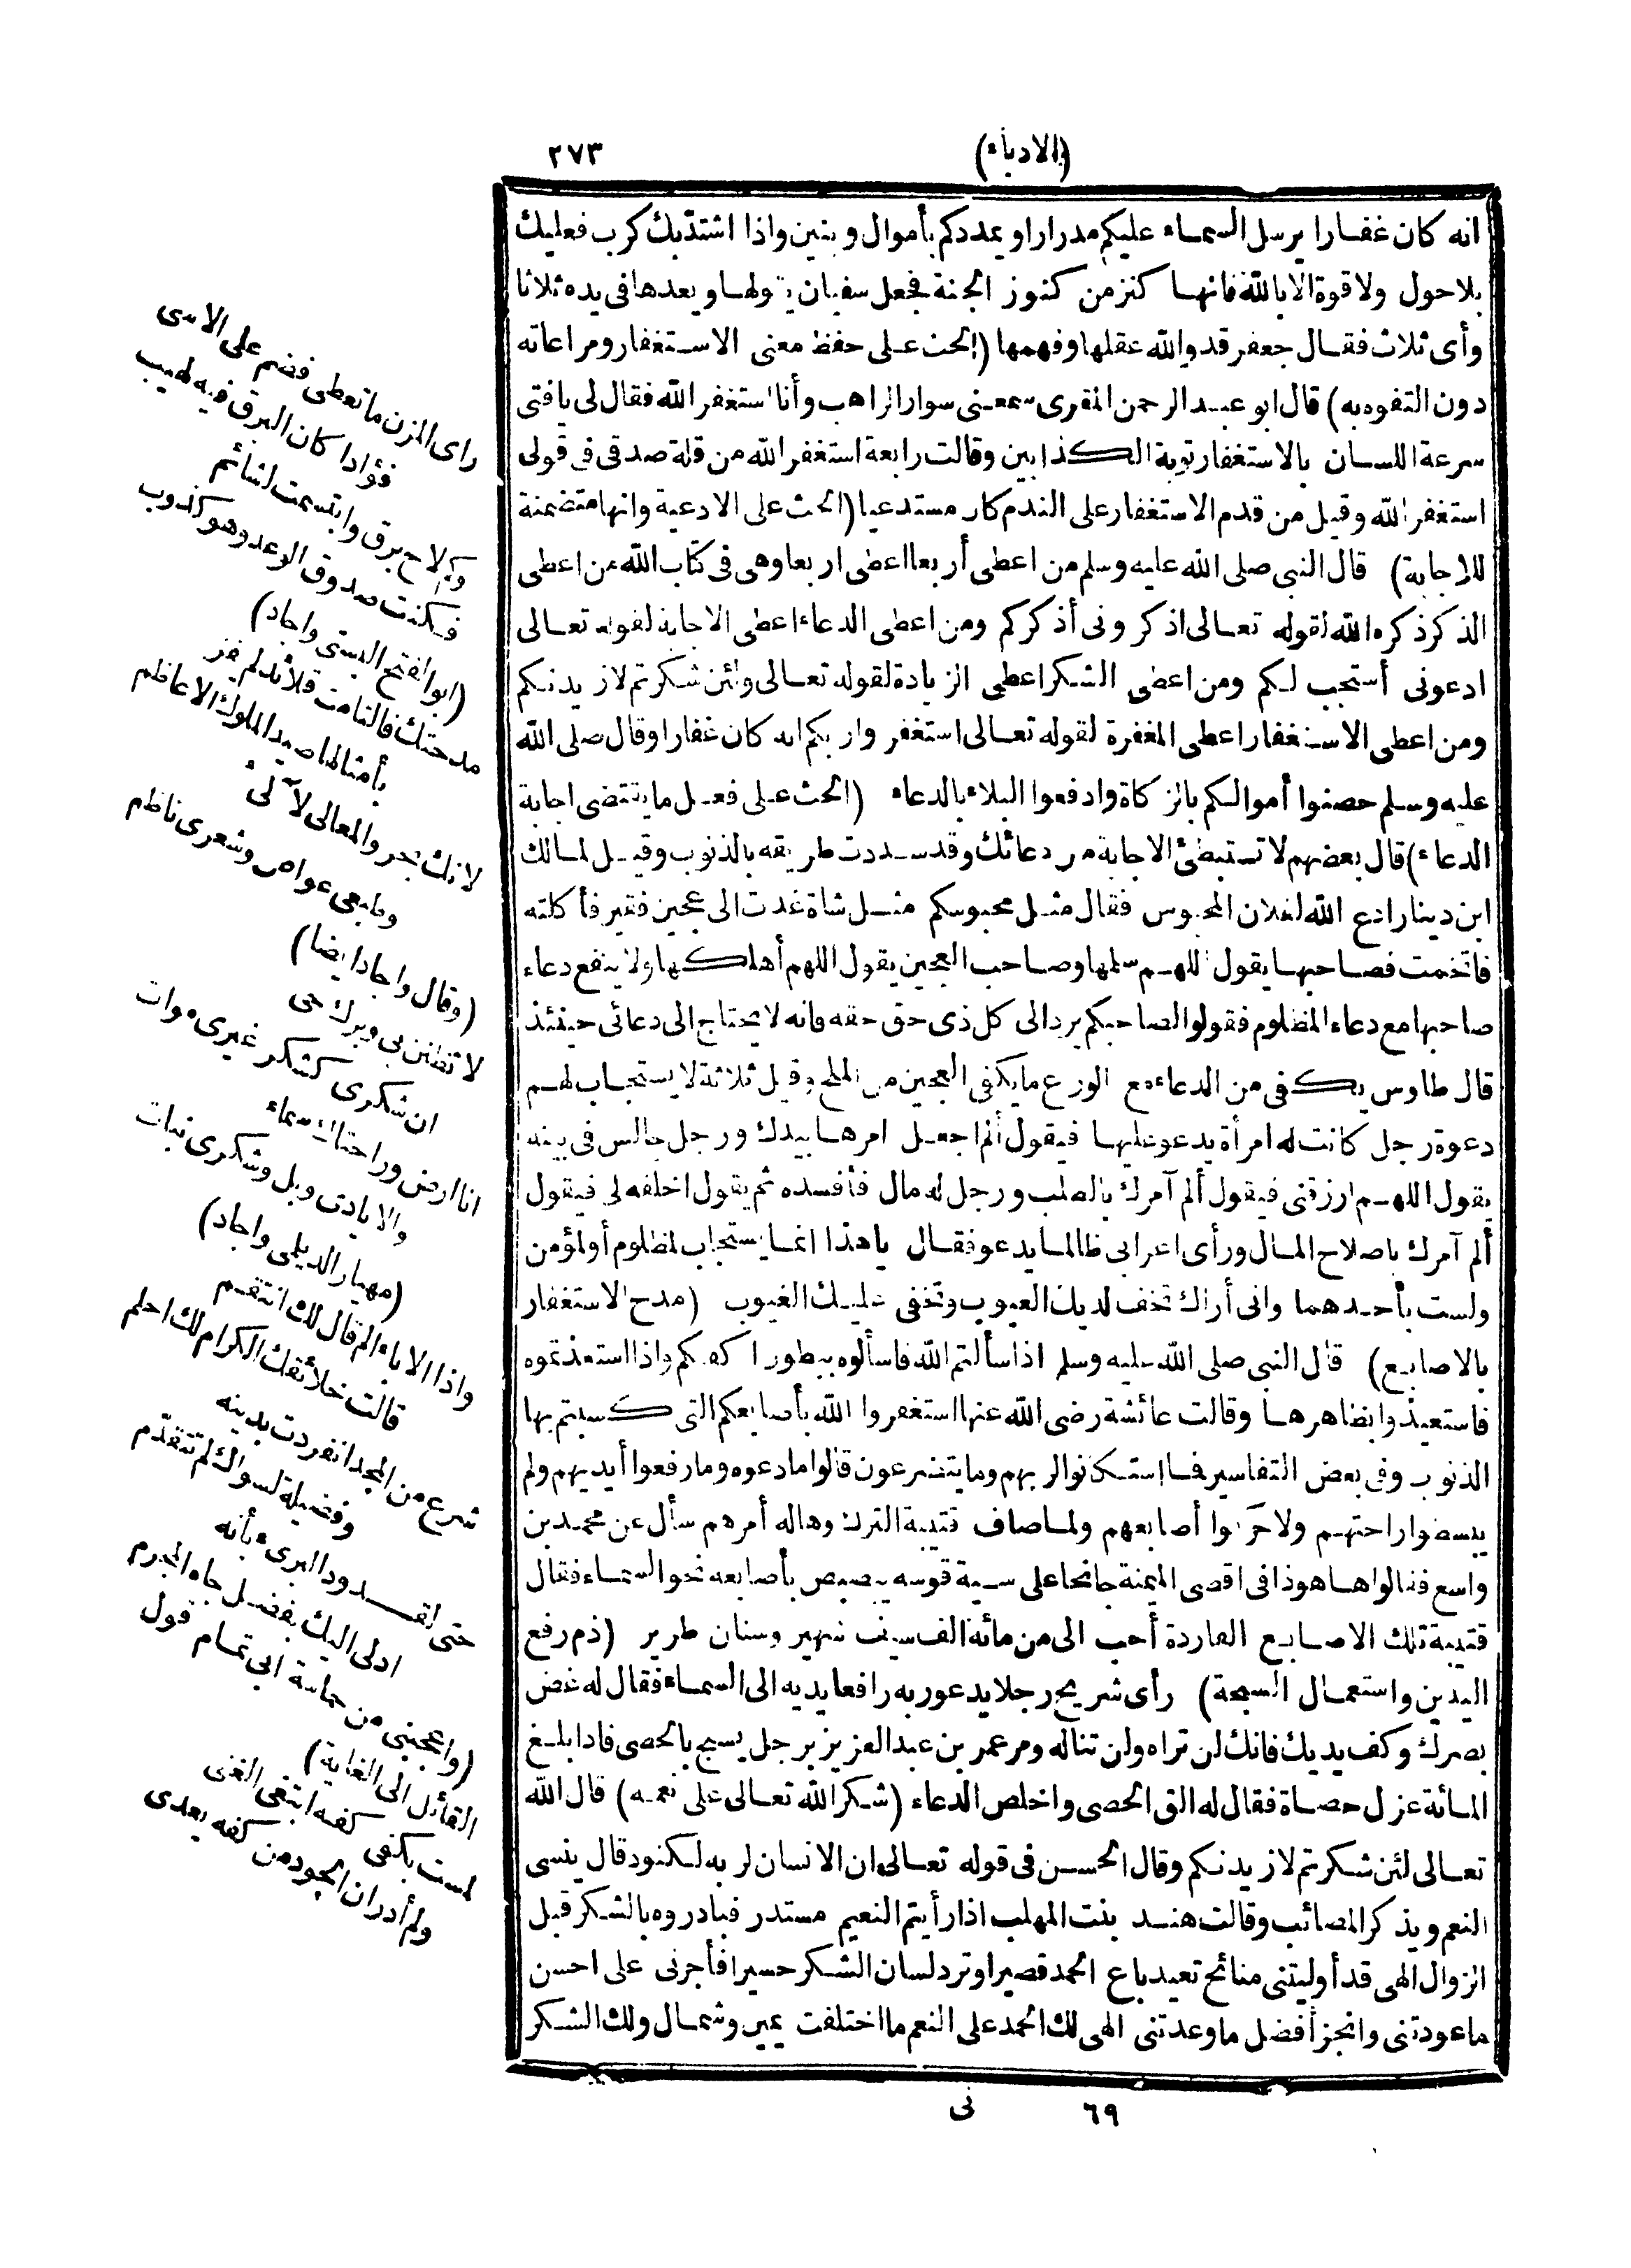 (الادباء)
٢٧٣
انه كان غفارا يرسل السماء عليكم مدرارا ويمددكم بأموال وبنين واذا اشتدّ بك كرب فعليك
بلا حول ولا قوة الا بالله فانها كنز من كنوز الجنة فجعل سفيان يقولها ويعدها فى يده ثلاثا
وأى ثلاث فقال جعفر قد والله عقلها وفهمها (الحث على حفظ معنى الاستغفار ومراعاته
دون التفوه به) قال ابو عبد الرحمن المقرى سمعنى سوار الراهب وأنا استغفر الله فقال لى يا فتى
سرعة اللسان بالاستغفار توبة الكذابين وقالت رابعة استغفر الله من قلة صدقى فى قولى
استغفر الله وقيل من قدم الاستغفار على الندم كان مستدعيا (الحث على الادعية وانها متضمنة
للاجابة) قال النبى صلى الله عليه وسلم من اعطى أربعا اعطى اربعا وهى فى كتاب الله من اعطى
الذكر ذكره الله لقوله تعالى اذكرونى أذكركم ومن اعطى الدعاء اعطى الاجابة لقوله تعالى
ادعونى أستجب لكم ومن اعطى الشكر اعطى الزيادة لقوله تعالى ولئن شكرتم لازيدنكم
ومن اعطى الاستغفار اعطى المغفرة لقوله تعالى استغفروا ربكم انه كان غفارا وقال صلى الله
عليه وسلم حصنوا أموالكم بالزكاة وادفعوا البلاء بالدعاء (الحث على فعل ما يقتضى اجابة
الدعاء) قال بعضهم لا تستبطئ الاجابة من دعائك وقد سددت طريقه بالذنوب وقيل لمالك
ابن دينار ادع الله لفلان المحبوس فقال مثل محبوسكم مثل شاة غدت الى عجين فقير فأكلته
فاتخمت فصاحبها يقول اللهم سلمها وصاحب العجين يقول اللهم أهلكها ولا ينفع دعاء
صاحبها مع دعاء المظلوم فقولوا لصاحبكم يرد الى كل ذى حق حقه فانه لا يحتاج الى دعائى حينئذ
قال طاوس يكفى من الدعاء مع الورع ما يكفى العجين من الملح وقيل ثلاثة لا يستجاب لهم
دعوة رجل كانت له امرأة يدعو عليها فيقول ألم اجعل امرها بيدك ورجل جالس فى بيته
يقول اللهم ارزقنى فيقول ألم آمرك بالطلب ورجل له مال فأفسده ثم يقول اخلفه لى فيقول
ألم آمرك باصلاح المال ورأى اعرابى ظالما يدعو فقال يا هذا انما يستجاب لمظلوم أو لمؤمن
ولست بأحدهما وانى أراك تخف لديك العيوب وتخفى عليك الغيوب (مدح الاستغفار
بالاصابع) قال النبى صلى الله عليه وسلم اذا سألتم الله فاسألوه ببطون اكفكم واذا استعذتموه
فاستعيذوا بظاهرها وقالت عائشة رضى الله عنها استغفروا الله بأصابعكم التى كسبتم بها
الذنوب وفى بعض التفاسير فما استكانوا لربهم وما يتضرعون قالوا ما دعوه وما رفعوا أيديهم ولم
يبسطوا راحتهم ولا حركوا أصابعهم ولما صاف قتيبة الترك وهاله أمرهم سأل عن محمد بن
واسع فقالوا ها هو ذا فى اقصى الميمنة جانحا على سية قوسه يبصبص بأصابعه نحو السماء فقال
قتيبة تلك الاصابع الفاردة أحب الى من مائة الف سيف شهير وسنان طرير (ذم رفع
اليدين واستعمال السبحة) رأى شريح رجلا يدعو ربه رافعا يديه الى السماء فقال له غض
بصرك وكف يديك فانك لن تراه ولن تناله ومر عمر بن عبد العزيز برجل يسبح بالحصى فاذا بلغ
المائة عزل حصاة فقال له الق الحصى واخلص الدعاء (شكر الله تعالى على نعمه) قال الله
تعالى لئن شكرتم لازيدنكم وقال الحسن فى قوله تعالى ان الانسان لربه لكنود قال ينسى
النعم ويذكر المصائب وقالت هند بنت المهلب اذا رأيتم النعيم مستدر فبادروه بالشكر قبل
الزوال الهى قد أوليتنى منائح تعيد باع الحمد قصيرا وترد لسان الشكر حسيرا فأجرنى على احسن
ما عودتنى وانجز أفضل ما وعدتنى الهى لك الحمد على النعم ما اختلفت يمين وشمال ولك الشكر
٦٩ نى
راى المزن ما تعطى فضم على الاسى
فؤادا كان البرق فيه لهيب
وكم لاح برق وابتسمت لشائم
فكنت صدوق الوعد وهو كذوب
(ابو الفتح البستى واجاد)
مدحتك فالتامت قلائد لم يفز
بأمثالها صيد الملوك الاعاظم
لانك بحر والمعالى لآلئ
وطبعى غواص وشعرى ناظم
(وقال واجاد ايضا)
لا تظنن بى وبرك حى
ان شكرى كشكر غيرى موات
انا ارض وراحتاك سماء
والايادى وبل وشكرى نبات
(مهيار الديلمى واجاد)
واذا الاباء المر قال لك انتقم
قالت خلائقك الكرام لك احلم
شرع من المجد انفردت بدينه
وفضيلة لسواك لم تتقدّم
حتى لقد ود البرىء بأنه
ادلى اليك بفضل جاه المجرم
(واعجبنى من حماسة ابى تمام قول
القائل الى الغاية)
لمست بكفى كفه ابتغى الغنى
ولم أدر ان الجود من كفه يعدى